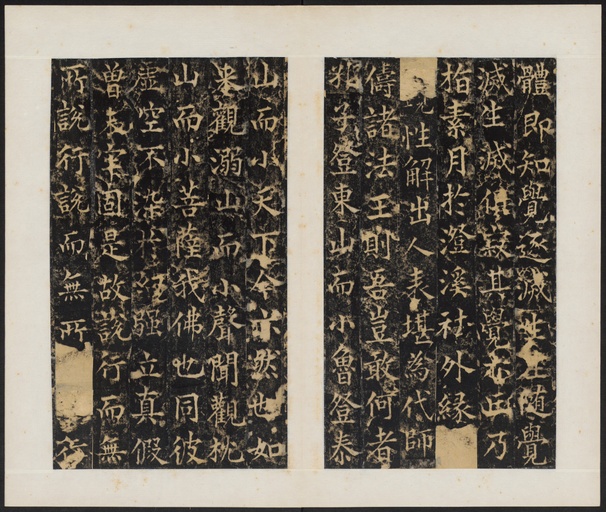 體即知覺逐滅生生隨覺
滅生滅俱寂其覺亦正乃
指素月於澄溪祛外緣
性解出人表堪為代師
儔諸法王則吾豈敢何者
孔子登東山而小魯登泰
山而小天下今亦然也如
來觀溺山而小聲聞觀枕
山而小菩薩我佛也同彼
虛空不染強立真假
曾固是故說行而無
所說行說而無所行